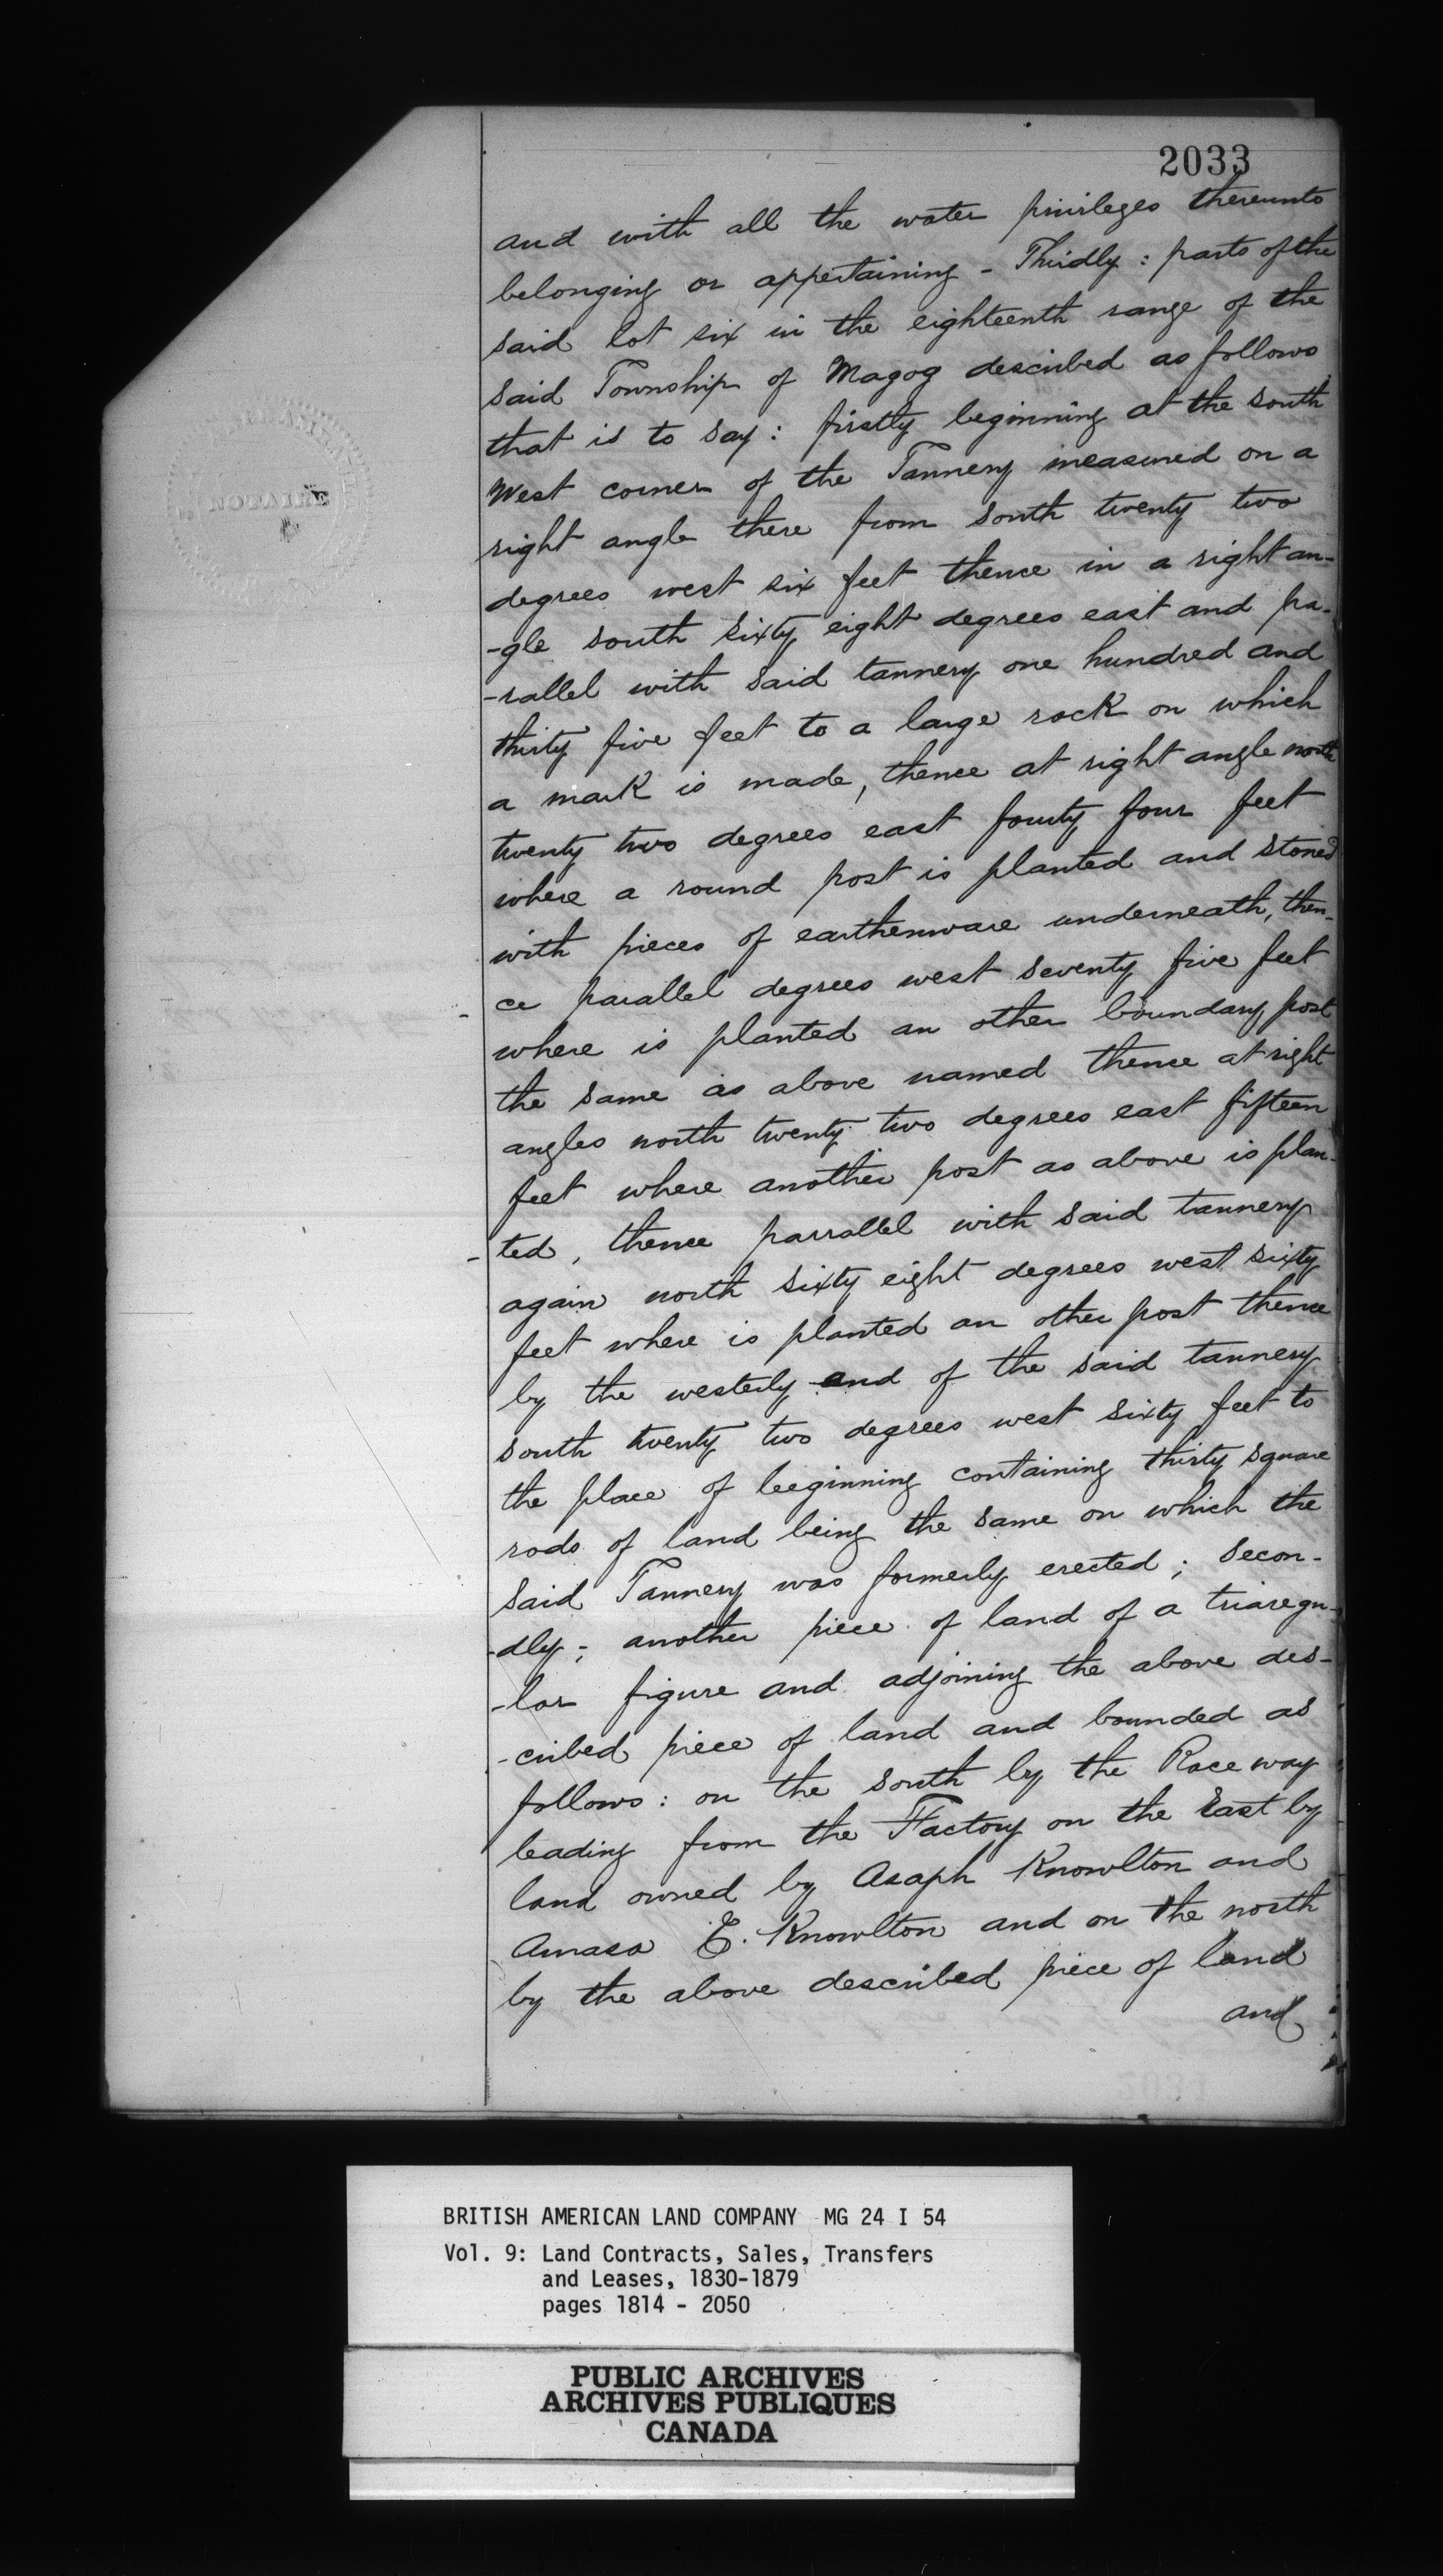 2033
and with all the water privileges thereunto
belonging or appertaining - Thirdly : parts of the
said lot six in the eighteenth range of the
said Township of Magog described as follows
that is to say : firstly beginning at the south
West corner of the Tannery measured on a
right angle there from South twenty two
degrees west six feet thence in a right an-
-gle south sixty eight degrees east and pa-
-rallel with said tannery one hundred and
thirty five feet to a large rock on which
a mark is made, thence at right angle north
twenty two degrees east fourty four feet
where a round post is planted and stoned
with pieces of earthenware underneath, then-
ce parallel degrees west seventy five feet
where is planted an other boundary post
the same as above named thence at right
angles north twenty two degrees east fifteen
feet where another post as above is plan-
-ted, thence parrallel with said tannery
again north sixty eight degrees west sixty
feet where is planted an other post thence
by the westerly end of the said tannery
south twenty two degrees west sixty feet to
the place of beeginning containing thirty square
rods of land being the same on which the
said Tannery was formerly erected ; secon-
-dly ; another piece of land of a triaregu-
-lar figure and adjoining the above des-
-cribed piece of land and bounded as
follows : on the south by the Race way
leading from the Factory on the East by
land owned by Asaph Knowlton and
Amasa E. Knowlton and on the north
by the above described piece of land
and
BRITISH AMERICAN LAND COMPANY MG 24 I 54
Vol. 9: Land Contracts, Sales, Transfers
and Leases, 1830-1879
pages 1814 - 2050
PUBLIC ARCHIVES
ARCHIVES PUBLIQUES
CANADA